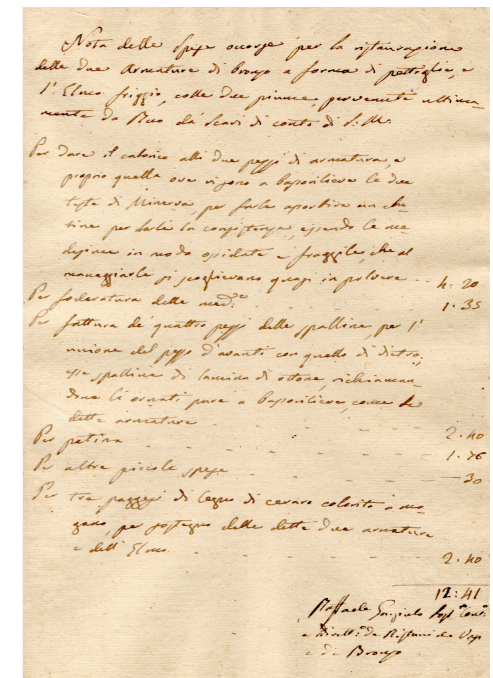 Nota delle spese occorse per la ristaurazione
delle due Armature di bronzo a forma di , e
l'Elmo friggio, colle due pinne, pervenute ultima-
mente da Ruvo da' Scavi di conto di S. M.
Per dare il calorico alli due pezzi di armatura, e
proprio quella ove vi sono a bassorilievo le due
teste di Minerva, per farle
per darle la consistenza, essendo le me-
desime in modo ossidate e fraggile, che al
maneggiarle si scioglievano quasi in polvere 4. 20
Per foderatura delle med.e 1. 35
Per fattura de' quattro pezzi delle spalline, per l'
unione del pezzo d'avanti con quello di dietro,
esse spalline di lamina di ottone, richiaman-
done li ornati pure a bassorilievo, come le
dette armature 2. 40
Per patina 1. 76
Per altre piccole spese 30
Per tre pezzi di legno di ceraso colorito a mo-
gano, per sostegno delle dette due armature
e dell' Elmo. 2. 40
12: 41
Raffaele
e de Ristauri de Vasi
e de Bronzo